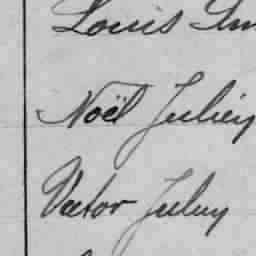 Louis
Noël Julien
Victor Julien